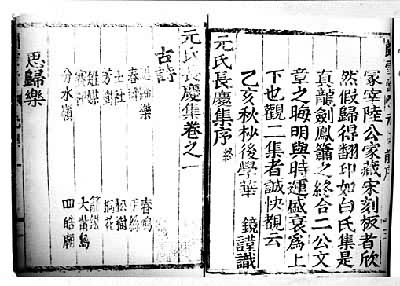 冢宰陸公家藏宋刻板者欣
然假歸得翻印如白氏集是
真龍劍鳳簫之終合二公文
章之晦明與時運盛衰為上
下也觀二集者誠快觀云
乙亥秋杪後學華 鏡謹識
元氏長慶集序 終
元氏長慶集卷之一
古詩
思歸樂 春鳩
春蟬
古社 松樹
芳樹 桐花
雉媒
大觜烏
分水嶺 四皓廟
思歸樂